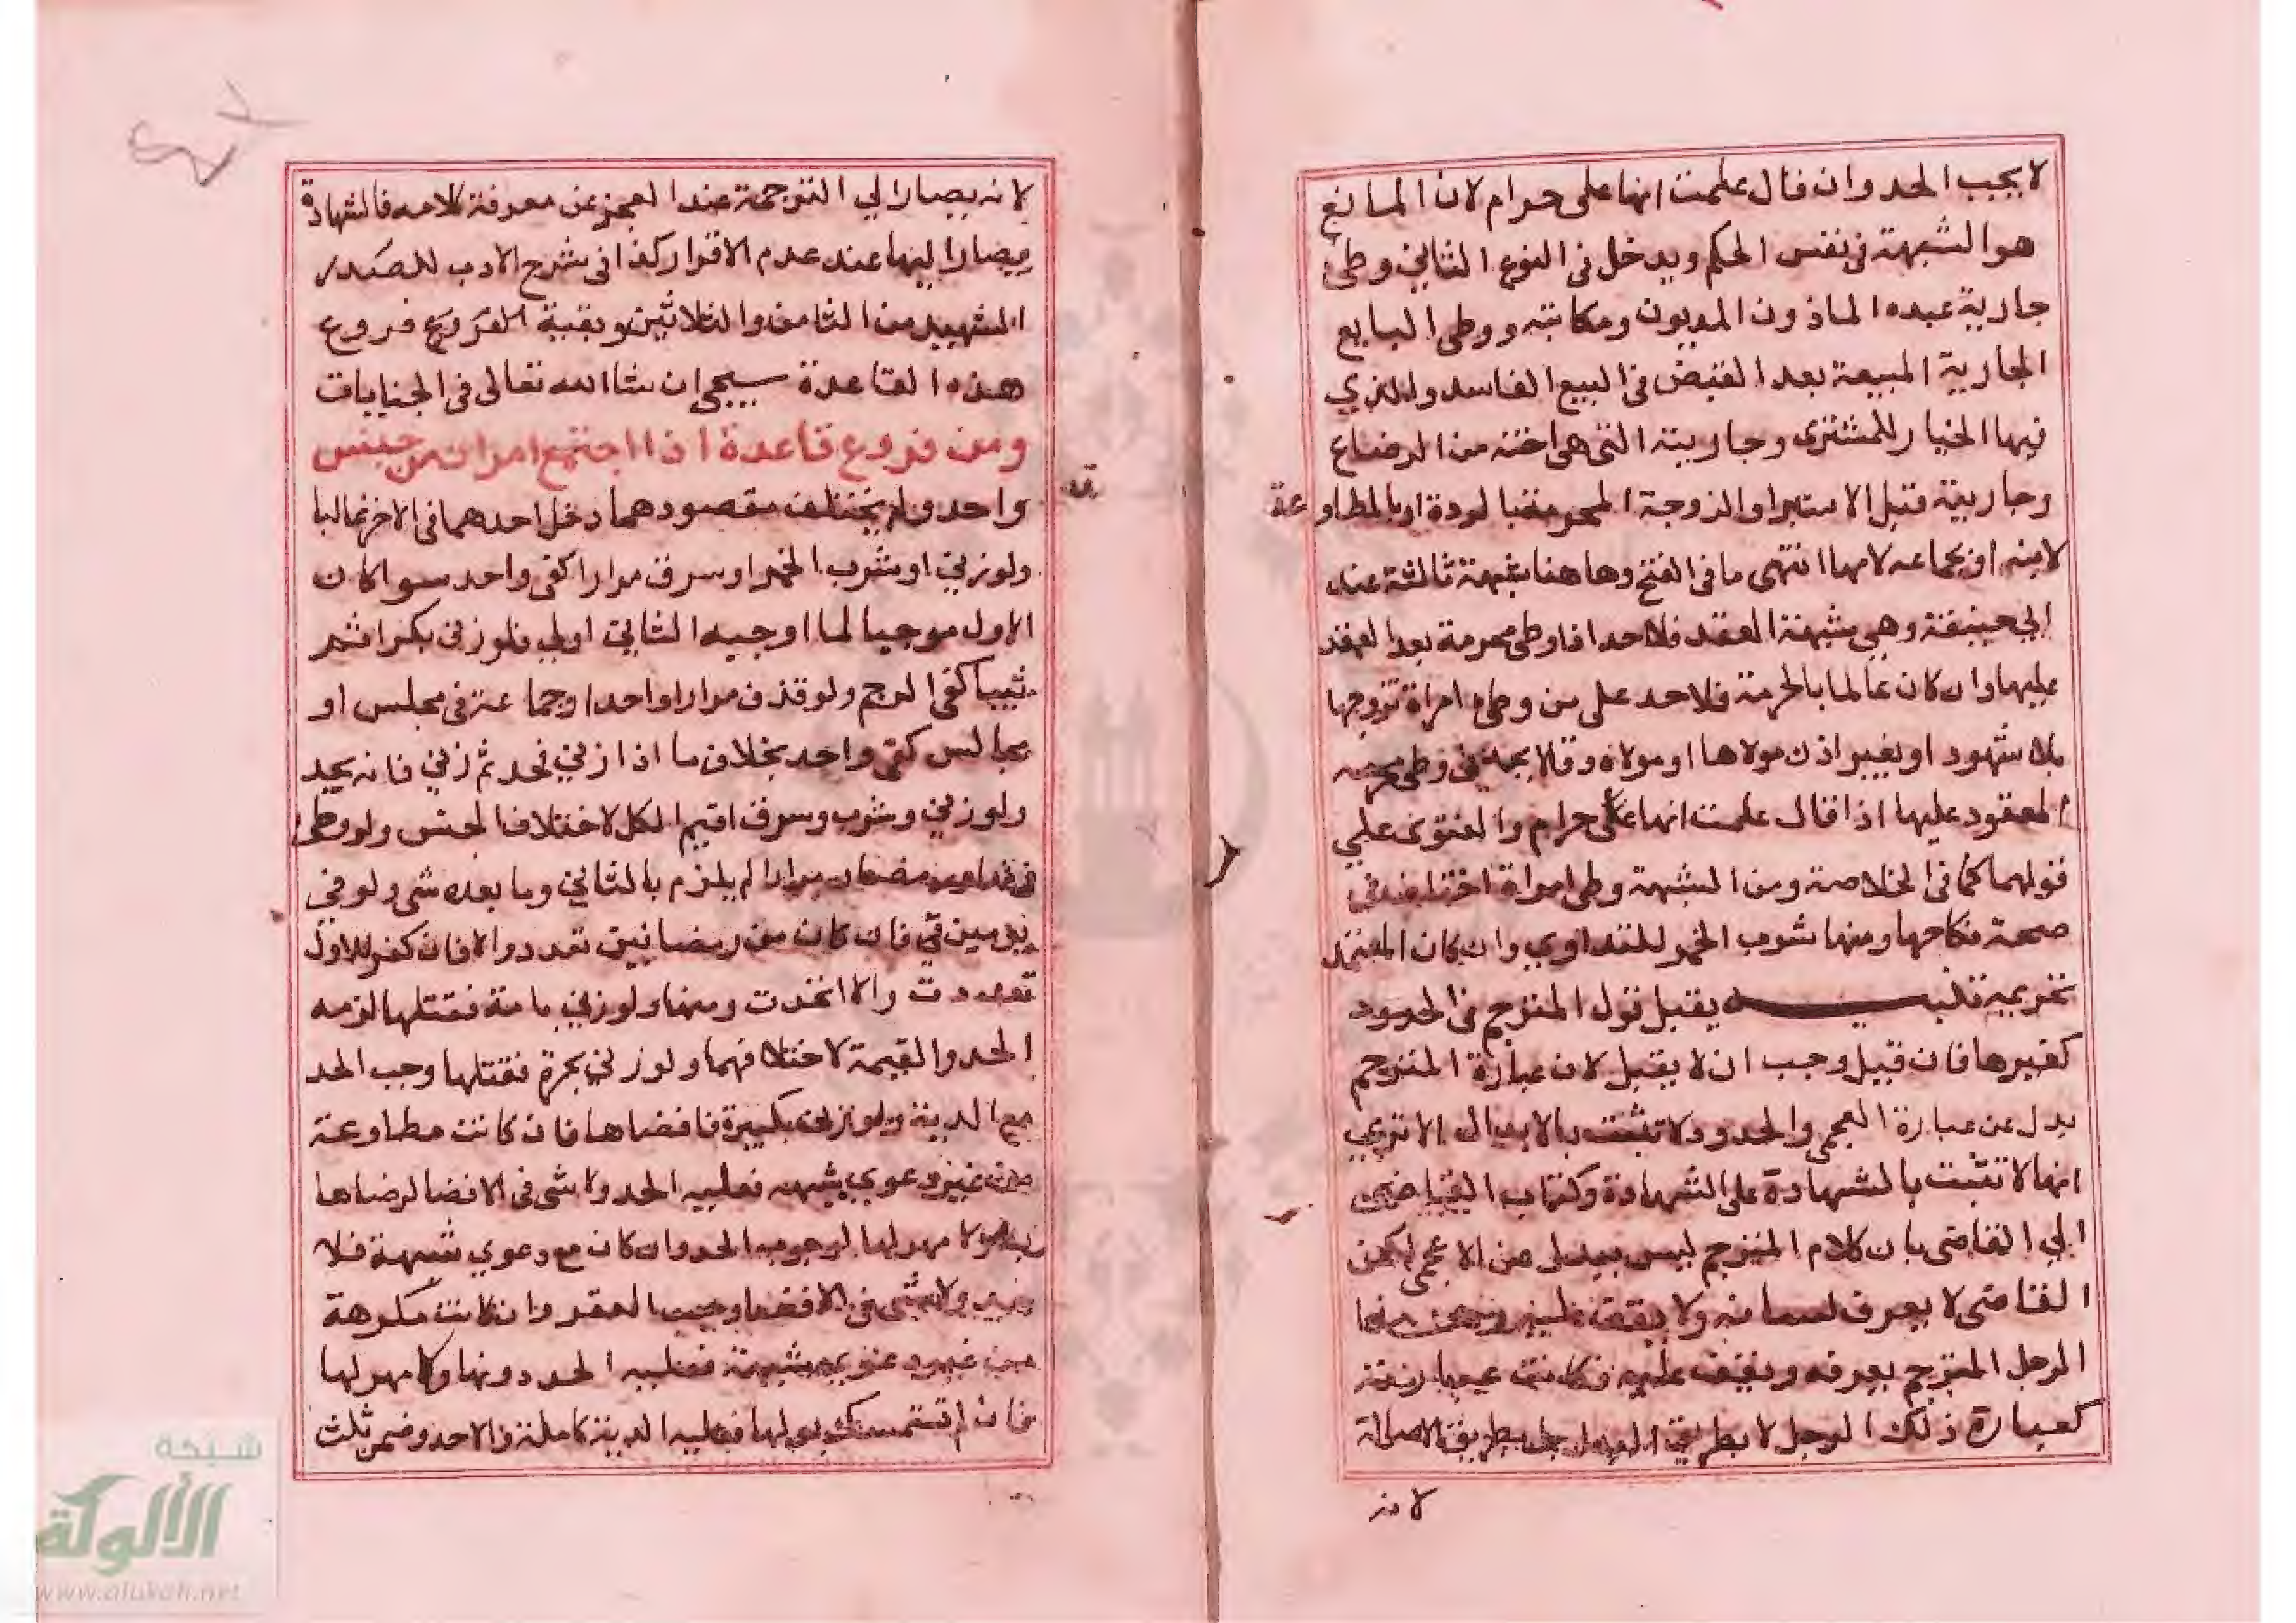 لا يجب الحد وان قال علمت انها على حرام لان المانع
هو الشبهة في نفس الحكم ويدخل في النوع الثاني وطئ
جارية عبده الماذون المديون ومكاتبه ووطى البايع
الجارية المبيعة بعد القبض في البيع الفاسد والذي
فيها الخيار للمشترى وجاريته التى هى اخته من الرضاع
وجاريته قبل الاستبرا والزوجة المحرمة بالردة او بالمطاوعة
لابنه او بجماعه لامها انتهى ما في الفتح وهاهنا شبهة ثالثة عند
ابي حنيفة وهي شبهة العقد فلا حد اذا وطى محرمة بعد العقد
عليها وان كان عالما بالحرمة فلا حد على من وطى امراة تزوجها
بلا شهود او بغير اذن مولاها او مولاه وقالا يحد في وطى محرمه
المعقود عليها اذا قال علمت انها على حرام والفتوى على
قولهما كما في الخلاصة ومن الشبهة وطى امراة اختلف في
صحة نكاحها ومنها شرب الخمر للتداوي وان كان المعتمد
تحريمه تنبيه يقبل قول المترجم في الحدود
كغيرها فان قيل وجب ان لا يقبل لان عبارة المترجم
بدل عن عبارة العجمى والحدود لا تثبت بالابدال الا ترى
انها لا تثبت بالشهادة على الشهادة وكتاب القاضى
الي القاضى بان كلام المترجم ليس ببدل عن الاعجمى لكن
القاضى لا يعرف لسانه ولا يقف عليه وهذا
الرجل المترجم يعرفه ويقف عليه فكانت عبارته
كعبارة ذلك الرجل لا بطريق البدل بل بطريق الاصالة
لانه
لانه يصار الي الترجمة عند العجز عن معرفة كلامه فالشهادة
يصار اليها عند عدم الاقرار كذا في شرح الادب للصدر
الشهيد من الثامن والثلاثين وبقية الفروع فروع
هذه القاعدة سيجي ان شا الله تعالى في الجنايات
ومن فروع قاعدة اذا اجتمع امران من جنس
واحد ولم يختلف مقصودهما دخل احدهما في الاخر غالبا
ولو زني او شرب الخمر او سرق مرارا كفى واحد سوا كان
الاول موجبا لما اوجبه الثاني اولي فلو زنى بكرا ثم
ثيبا كفى الرجم ولو قذف مرارا واحدا وجماعة في مجلس او
مجالس كفى واحد بخلاف ما اذا زني فحد ثم زني فانه يحد
ولو زني وشرب وسرق اقيم الكل لاختلاف الجنس ولو وطى
في نهار رمضان مرارا لم يلزم بالثاني وما بعده شى ولو في
يومين فان كان من رمضانين تعددوا الا فان كفر للاول
تعددت والا اتحدت ومنها ولو زني بامة فقتلها لزمه
الحد والقيمة لاختلافهما ولو زني بحرة فقتلها وجب الحد
مع الدية ولو زنى بكبيرة فافضاها فان كانت مطاوعة
من غير دعوي شبهه فعليه الحد ولا شى في الافضا لرضاها
ولا مهر لها لوجوب الحد وان كان مع دعوي شبهة فلا
ولا شى في الافضا وجب العقر وان كانت مكرهة
من غير دعوى شبهة فعليه الحد دونها ولا مهر لها
فان لم تستمسك بولها فعليه الدية كاملة والا حد وضمن ثلث
شبكة
الألوكة
www.alukah.net